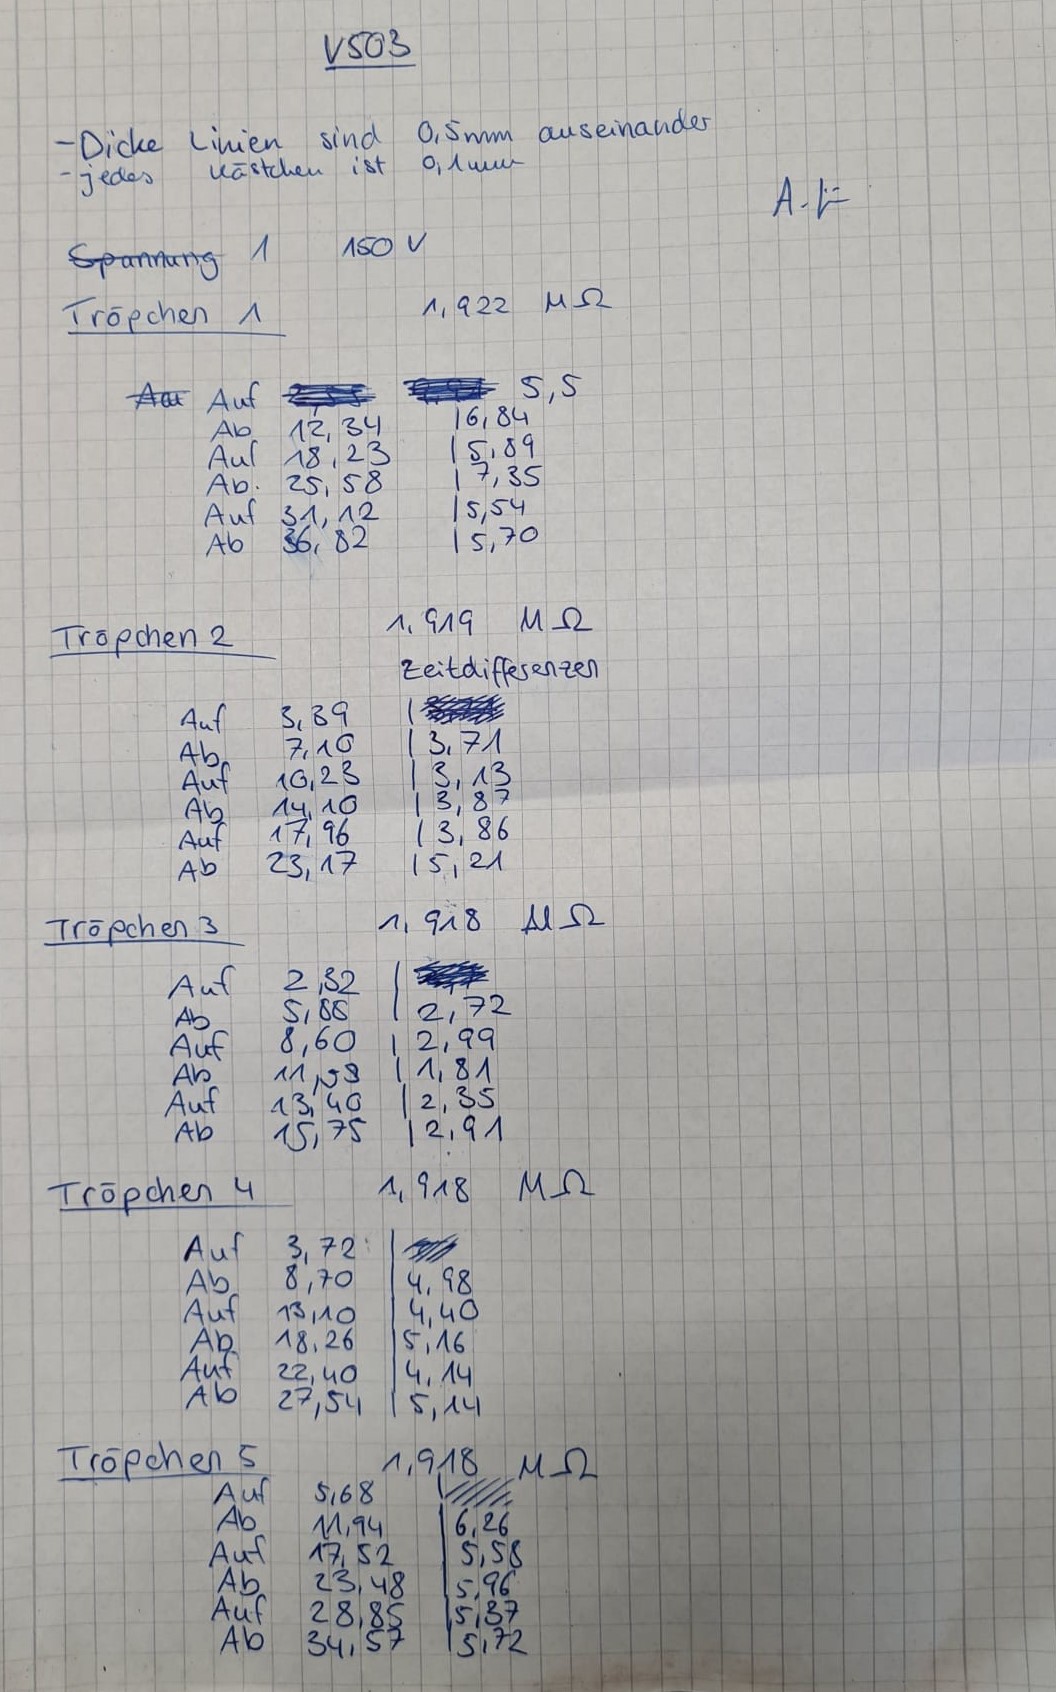 V503
- Dicke Linien sind 0,5mm auseinander
- jedes Kästchen ist 0,1mm
Spannung 1 150 V
Tröpchen 1 1,922 MΩ
Auf 5,5
Ab 12,34 | 6,84
Auf 18,23 | 5,89
Ab. 25,58 | 7,35
Auf 31,12 | 5,54
Ab 36,82 | 5,70
Tröpchen 2 1,919 MΩ
Zeitdifferenzen
Auf 3,39 |
Ab 7,10 | 3,71
Auf 10,23 | 3,13
Ab 14,10 | 3,87
Auf 17,96 | 3,86
Ab 23,17 | 5,21
Tröpchen 3 1,918 MΩ
Auf 2,32 |
Ab 5,88 | 2,72
Auf 8,60 | 2,99
Ab 11,59 | 1,81
Auf 13,40 | 2,35
Ab 15,75 | 2,91
Tröpchen 4 1,918 MΩ
Auf 3,72 |
Ab 8,70 | 4,98
Auf 13,10 | 4,40
Ab 18,26 | 5,16
Auf 22,40 | 4,14
Ab 27,54 | 5,14
Tröpchen 5 1,918 MΩ
Auf 5,68 |
Ab 11,94 | 6,26
Auf 17,52 | 5,58
Ab 23,48 | 5,96
Auf 28,85 | 5,37
Ab 34,57 | 5,72